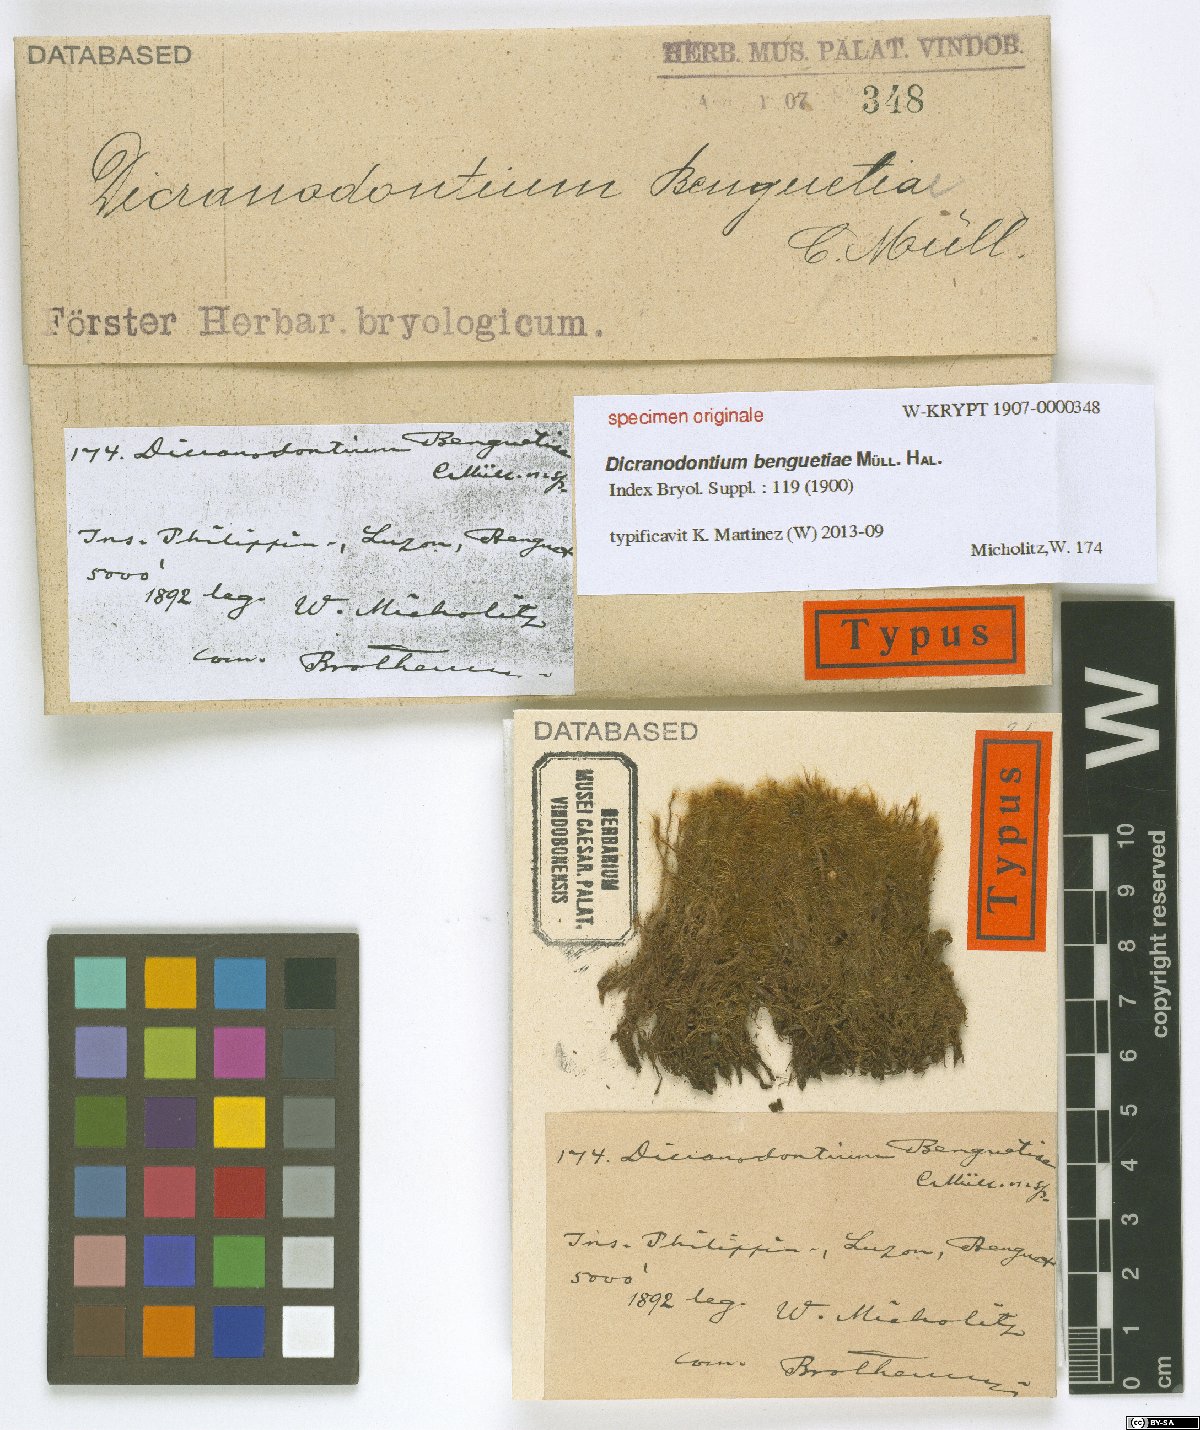 DATABASED
HERB. MUS. PALAT. VINDOB.
07
348
Dicranodontium Benguetiae
C. Müll.
Förster Herbar. bryologicum.
174. Dicranodontium Benguetiae
C. Müll. n. sp.
Ins. Philippin., Luzon, Benguet
5000'
1892 leg. W. Micholitz
com. Brotherus.
specimen originale
W-KRYPT 1907-0000348
Dicranodontium benguetiae MÜLL. HAL.
Index Bryol. Suppl. : 119 (1900)
typificavit K. Martinez (W) 2013-09
Micholitz,W. 174
Typus
DATABASED
HERBARIUM
MUSEI CAESAR. PALAT.
VINDOBONENSIS
Typus
174. Dicranodontium Benguetiae
C. Müll. n. sp.
Ins. Philippin., Luzon, Benguet
5000'
1892 leg. W. Micholitz
com. Brotherus
W
10
9
8
7
6
5
4
3
2
1
0
cm
copyright reserved
(cc) BY-SA